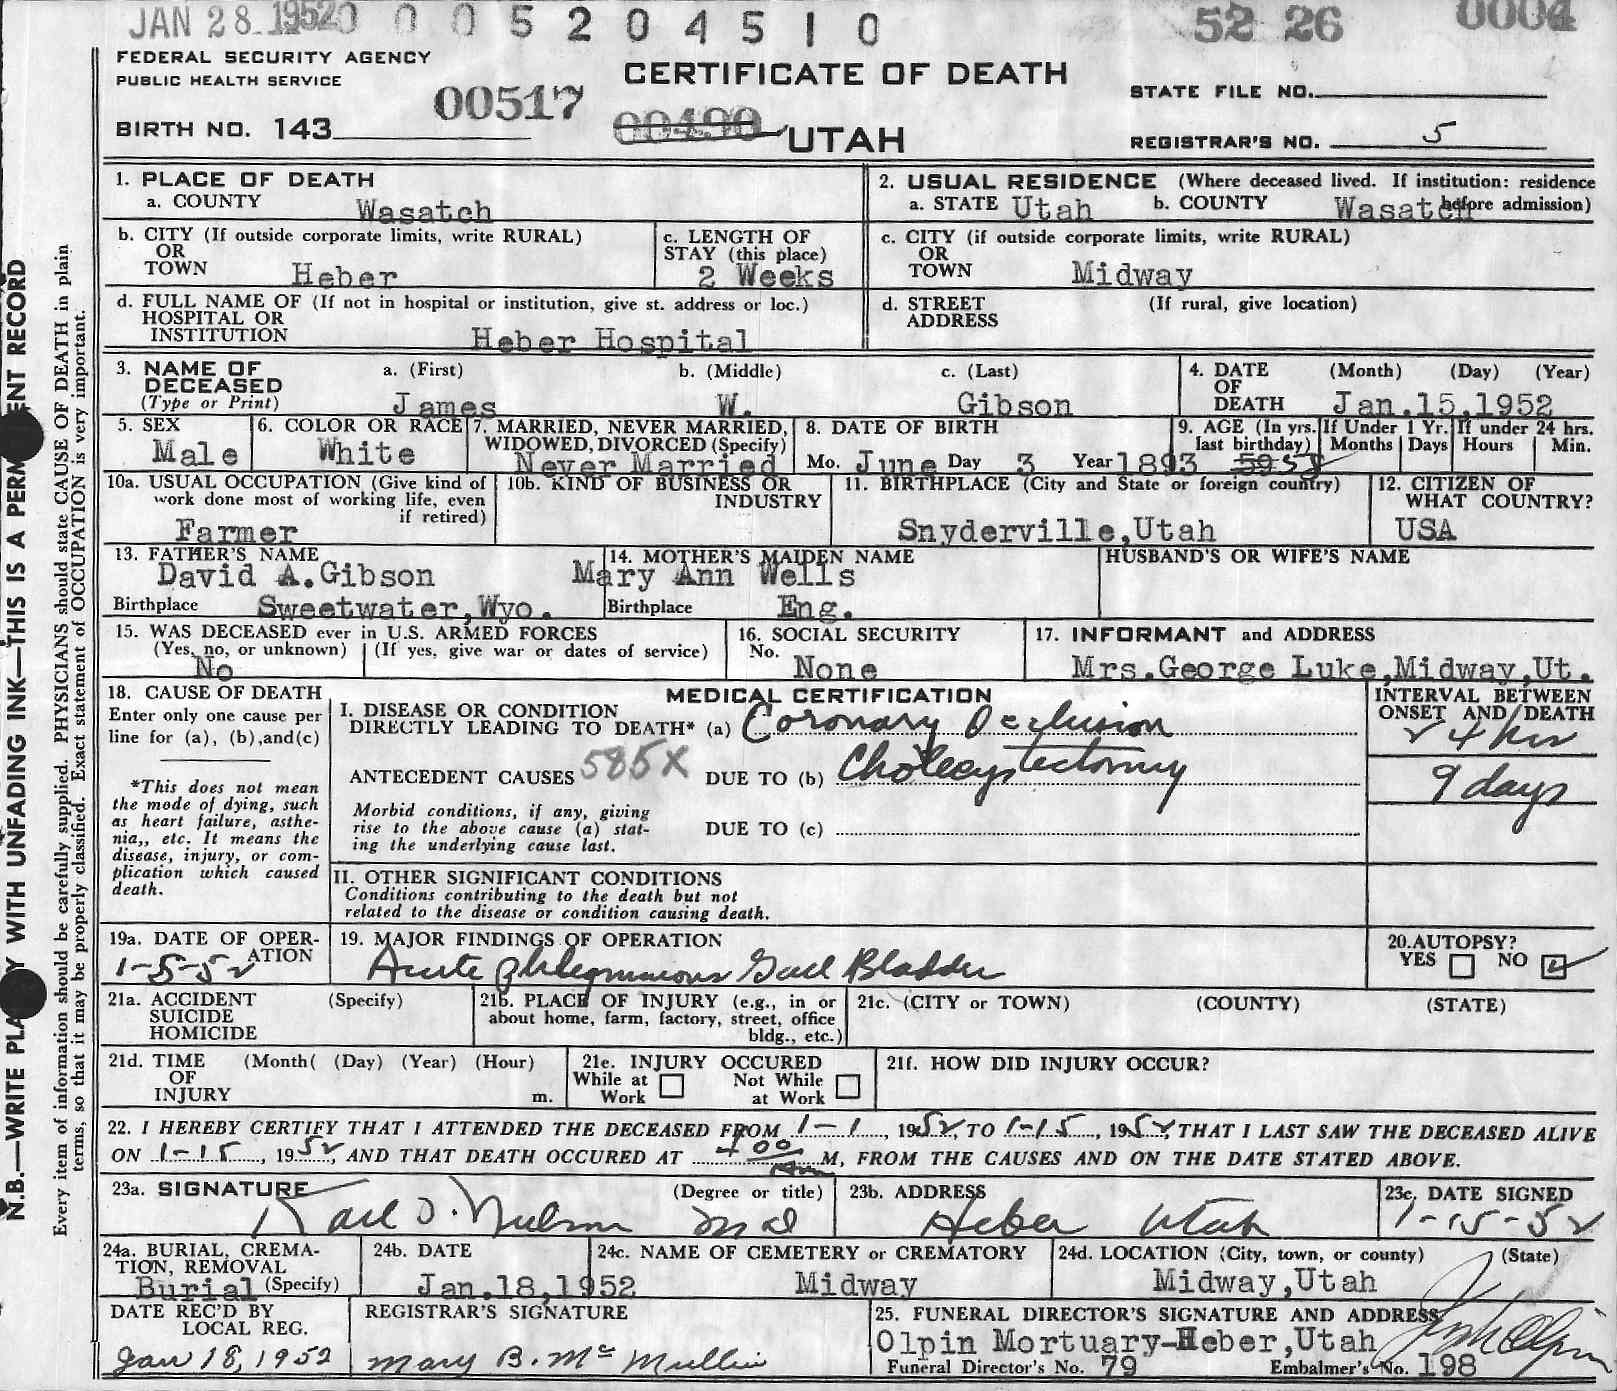 JAN 28 1952 0 0 0 5 2 0 4 5 1 0 52 26 0004
FEDERAL SECURITY AGENCY
PUBLIC HEALTH SERVICE
CERTIFICATE OF DEATH
STATE FILE NO.
00517 00490
BIRTH NO. 143
UTAH
REGISTRAR'S NO. 5
1. PLACE OF DEATH
a. COUNTY Wasatch
2. USUAL RESIDENCE (Where deceased lived. If institution: residence before admission)
a. STATE Utah b. COUNTY Wasatch
b. CITY (If outside corporate limits, write RURAL) OR TOWN Heber
c. LENGTH OF STAY (this place) 2 Weeks
c. CITY (if outside corporate limits, write RURAL) OR TOWN Midway
d. FULL NAME OF (If not in hospital or institution, give st. address or loc.) HOSPITAL OR INSTITUTION Heber Hospital
d. STREET ADDRESS (If rural, give location)
3. NAME OF DECEASED (Type or Print) a. (First) James b. (Middle) W. c. (Last) Gibson
4. DATE OF DEATH (Month) (Day) (Year) Jan.15,1952
5. SEX Male
6. COLOR OR RACE White
7. MARRIED, NEVER MARRIED, WIDOWED, DIVORCED (Specify) Never Married
8. DATE OF BIRTH Mo. June Day 3 Year 1893
9. AGE (In yrs. last birthday) If Under 1 Yr. Months Days If under 24 hrs. Hours Min.
10a. USUAL OCCUPATION (Give kind of work done most of working life, even if retired) Farmer
10b. KIND OF BUSINESS OR INDUSTRY
11. BIRTHPLACE (City and State or foreign country) Snyderville,Utah
12. CITIZEN OF WHAT COUNTRY? USA
13. FATHER'S NAME David A.Gibson
Birthplace Sweetwater,Wyo.
14. MOTHER'S MAIDEN NAME Mary Ann Wells
Birthplace Eng.
HUSBAND'S OR WIFE'S NAME
15. WAS DECEASED ever in U.S. ARMED FORCES
(Yes, no, or unknown) (If yes, give war or dates of service)
No
16. SOCIAL SECURITY No. None
17. INFORMANT and ADDRESS
Mrs.George Luke,Midway,Ut.
18. CAUSE OF DEATH
Enter only one cause per line for (a), (b),and(c)
*This does not mean the mode of dying, such as heart failure, asthenia,, etc. It means the disease, injury, or complication which caused death.
MEDICAL CERTIFICATION
INTERVAL BETWEEN ONSET AND DEATH
I. DISEASE OR CONDITION
DIRECTLY LEADING TO DEATH* (a) Coronary Occlusion
ANTECEDENT CAUSES 585X DUE TO (b) Cholecystectomy 9 days
Morbid conditions, if any, giving rise to the above cause (a) stating the underlying cause last.
DUE TO (c)
II. OTHER SIGNIFICANT CONDITIONS
Conditions contributing to the death but not related to the disease or condition causing death.
19a. DATE OF OPERATION 1-5-52
19. MAJOR FINDINGS OF OPERATION
Acute phlegmonous Gall Bladder
20.AUTOPSY? YES NO
21a. ACCIDENT SUICIDE HOMICIDE (Specify)
21b. PLACE OF INJURY (e.g., in or about home, farm, factory, street, office bldg., etc.)
21c. (CITY or TOWN) (COUNTY) (STATE)
21d. TIME OF INJURY (Month( (Day) (Year) (Hour) m.
21e. INJURY OCCURED While at Work Not While at Work
21f. HOW DID INJURY OCCUR?
22. I HEREBY CERTIFY THAT I ATTENDED THE DECEASED FROM 1-1, 1952, TO 1-15, 1952, THAT I LAST SAW THE DECEASED ALIVE
ON 1-15, 1952, AND THAT DEATH OCCURED AT 4 00 AM M, FROM THE CAUSES AND ON THE DATE STATED ABOVE.
23a. SIGNATURE (Degree or title)
Karl O. Nielson MD
23b. ADDRESS Heber Utah
23c. DATE SIGNED 1-15-52
24a. BURIAL, CREMATION, REMOVAL (Specify) Burial
24b. DATE Jan.18,1952
24c. NAME OF CEMETERY or CREMATORY Midway
24d. LOCATION (City, town, or county) (State) Midway,Utah
DATE REC'D BY LOCAL REG. Jan 18, 1952
REGISTRAR'S SIGNATURE Mary B. McMullin
25. FUNERAL DIRECTOR'S SIGNATURE AND ADDRESS
Olpin Mortuary-Heber,Utah
Funeral Director's No. 79 Embalmer's No. 198
N.B.—WRITE WITH UNFADING INK—THIS IS A RECORD
Every item of information should be carefully supplied. PHYSICIANS should state CAUSE OF DEATH in plain
terms, so that it may be properly classified. Exact statement of OCCUPATION is very important.